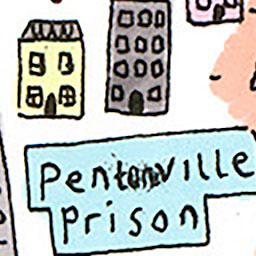 Pentonville
Prison